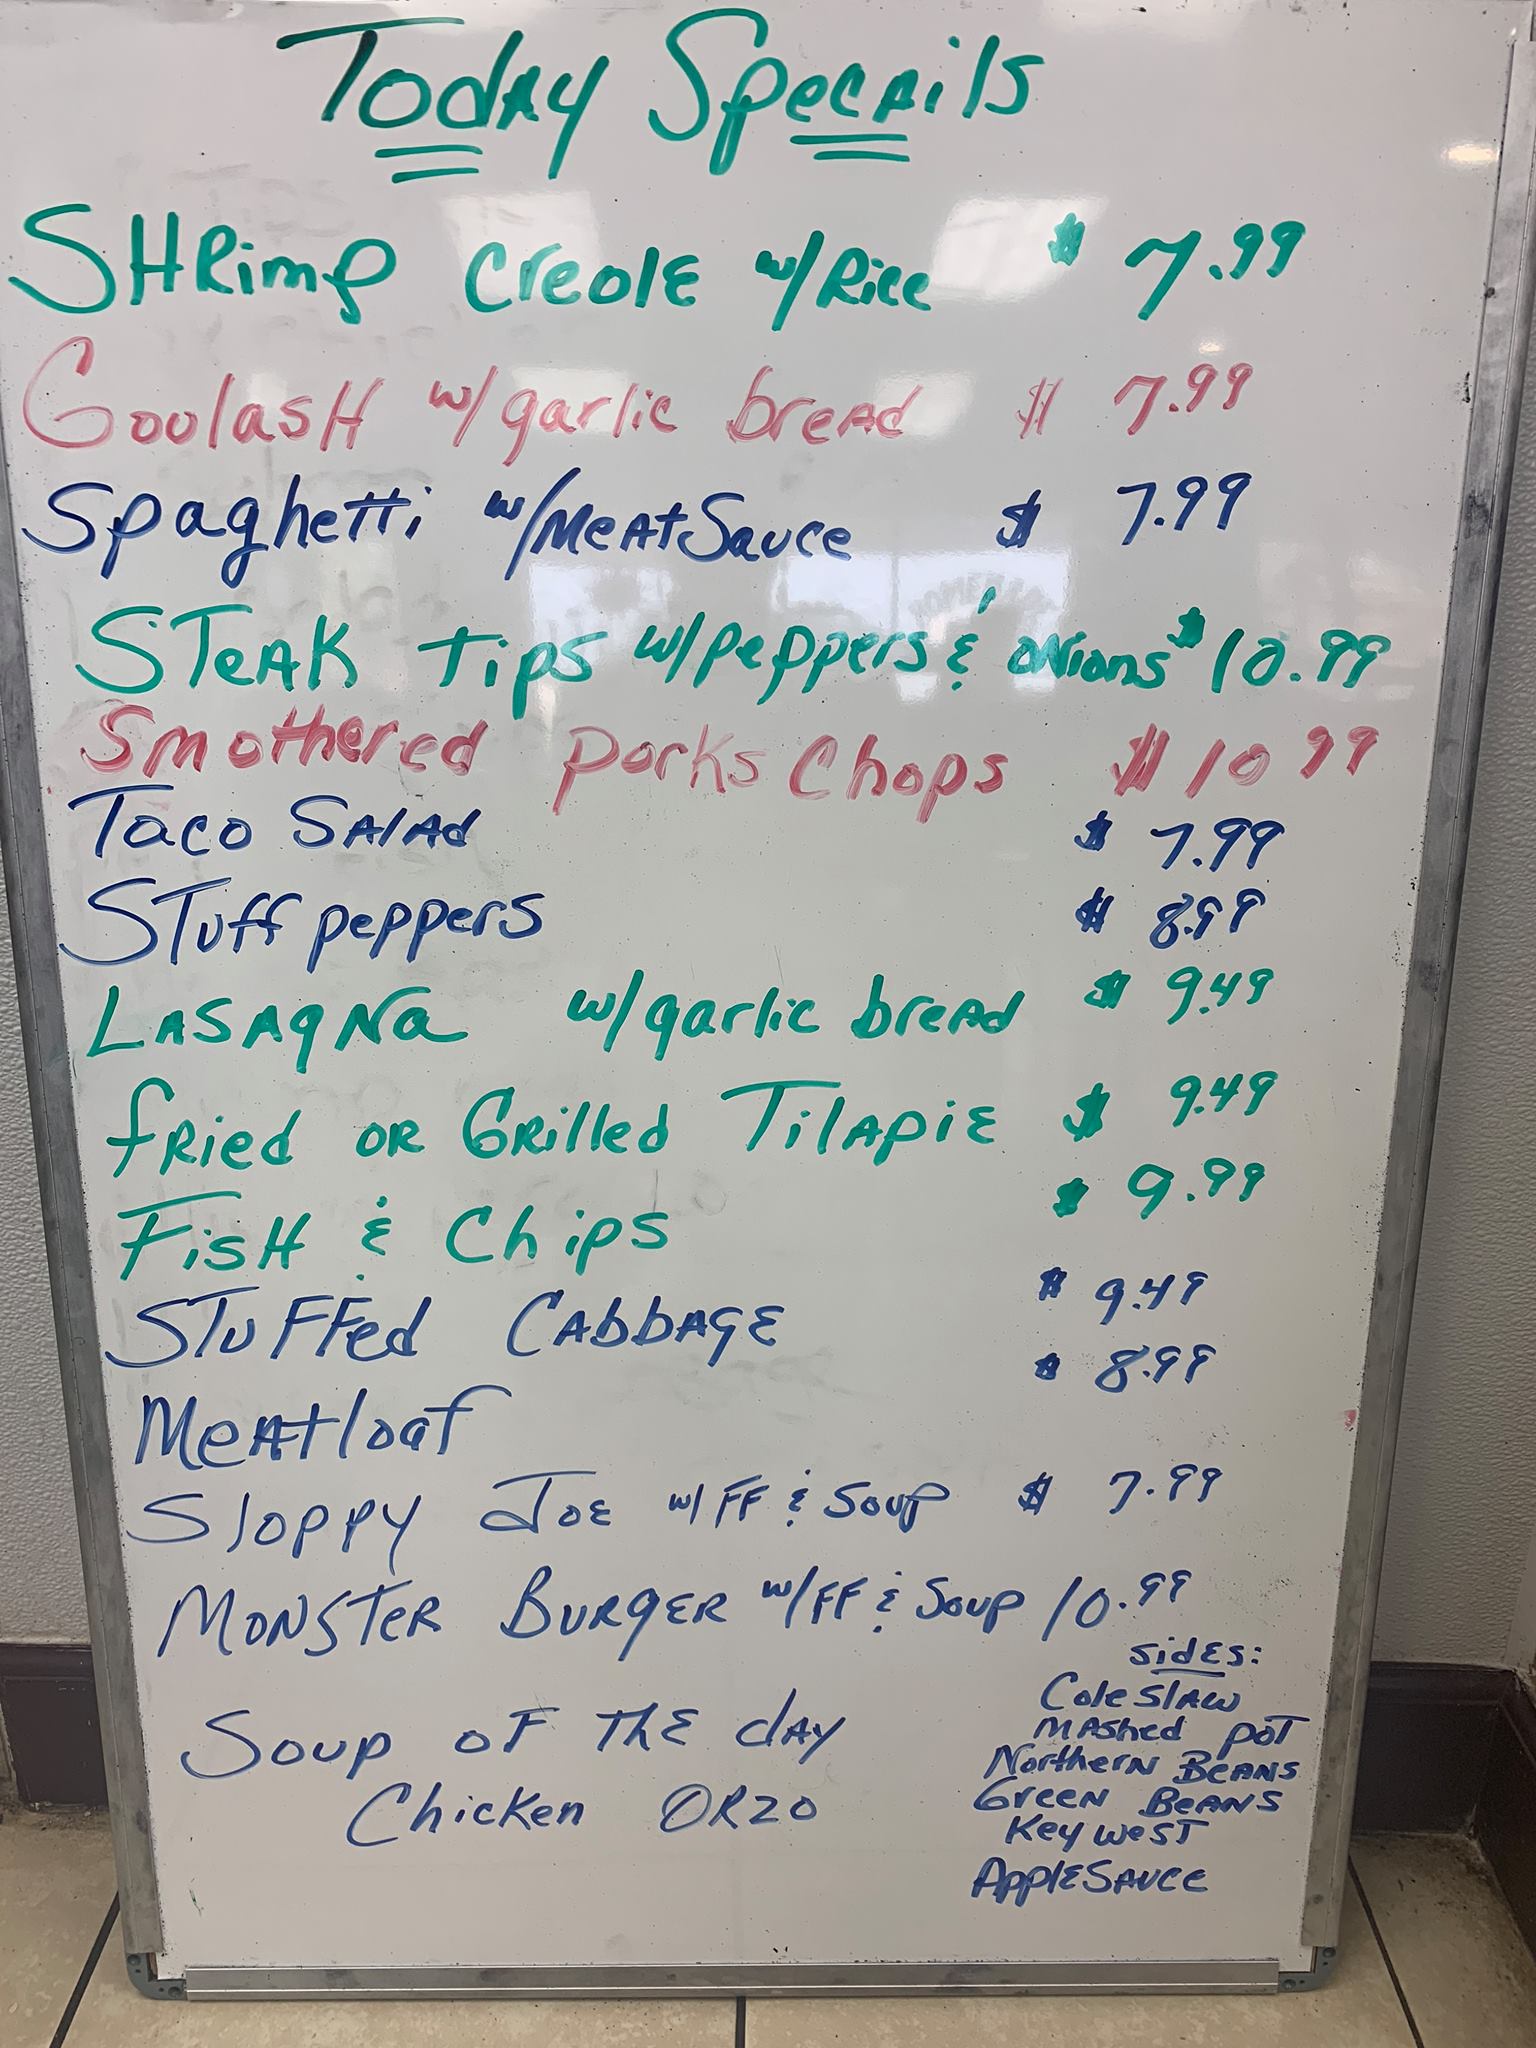 Today Specails
Shrimp Creole w/Rice $ 7.99
Goulash w/garlic bread $ 7.99
Spaghetti w/Meat Sauce $ 7.99
Steak Tips w/peppers & onions $ 10.99
Smothered Porks Chops $ 10 99
Taco Salad $ 7.99
Stuff peppers $ 8.99
Lasagna w/garlic bread $ 9.49
Fried or Grilled Tilapie $ 9.49
Fish & Chips $ 9.99
Stuffed Cabbage $ 9.49
Meatloaf $ 8.99
Sloppy Joe w/ FF & Soup $ 7.99
Monster Burger w/FF & Soup 10.99
Soup of the day
Chicken Orzo
Sides:
Cole Slaw
Mashed Pot
Northern Beans
Green Beans
Key West
AppleSauce